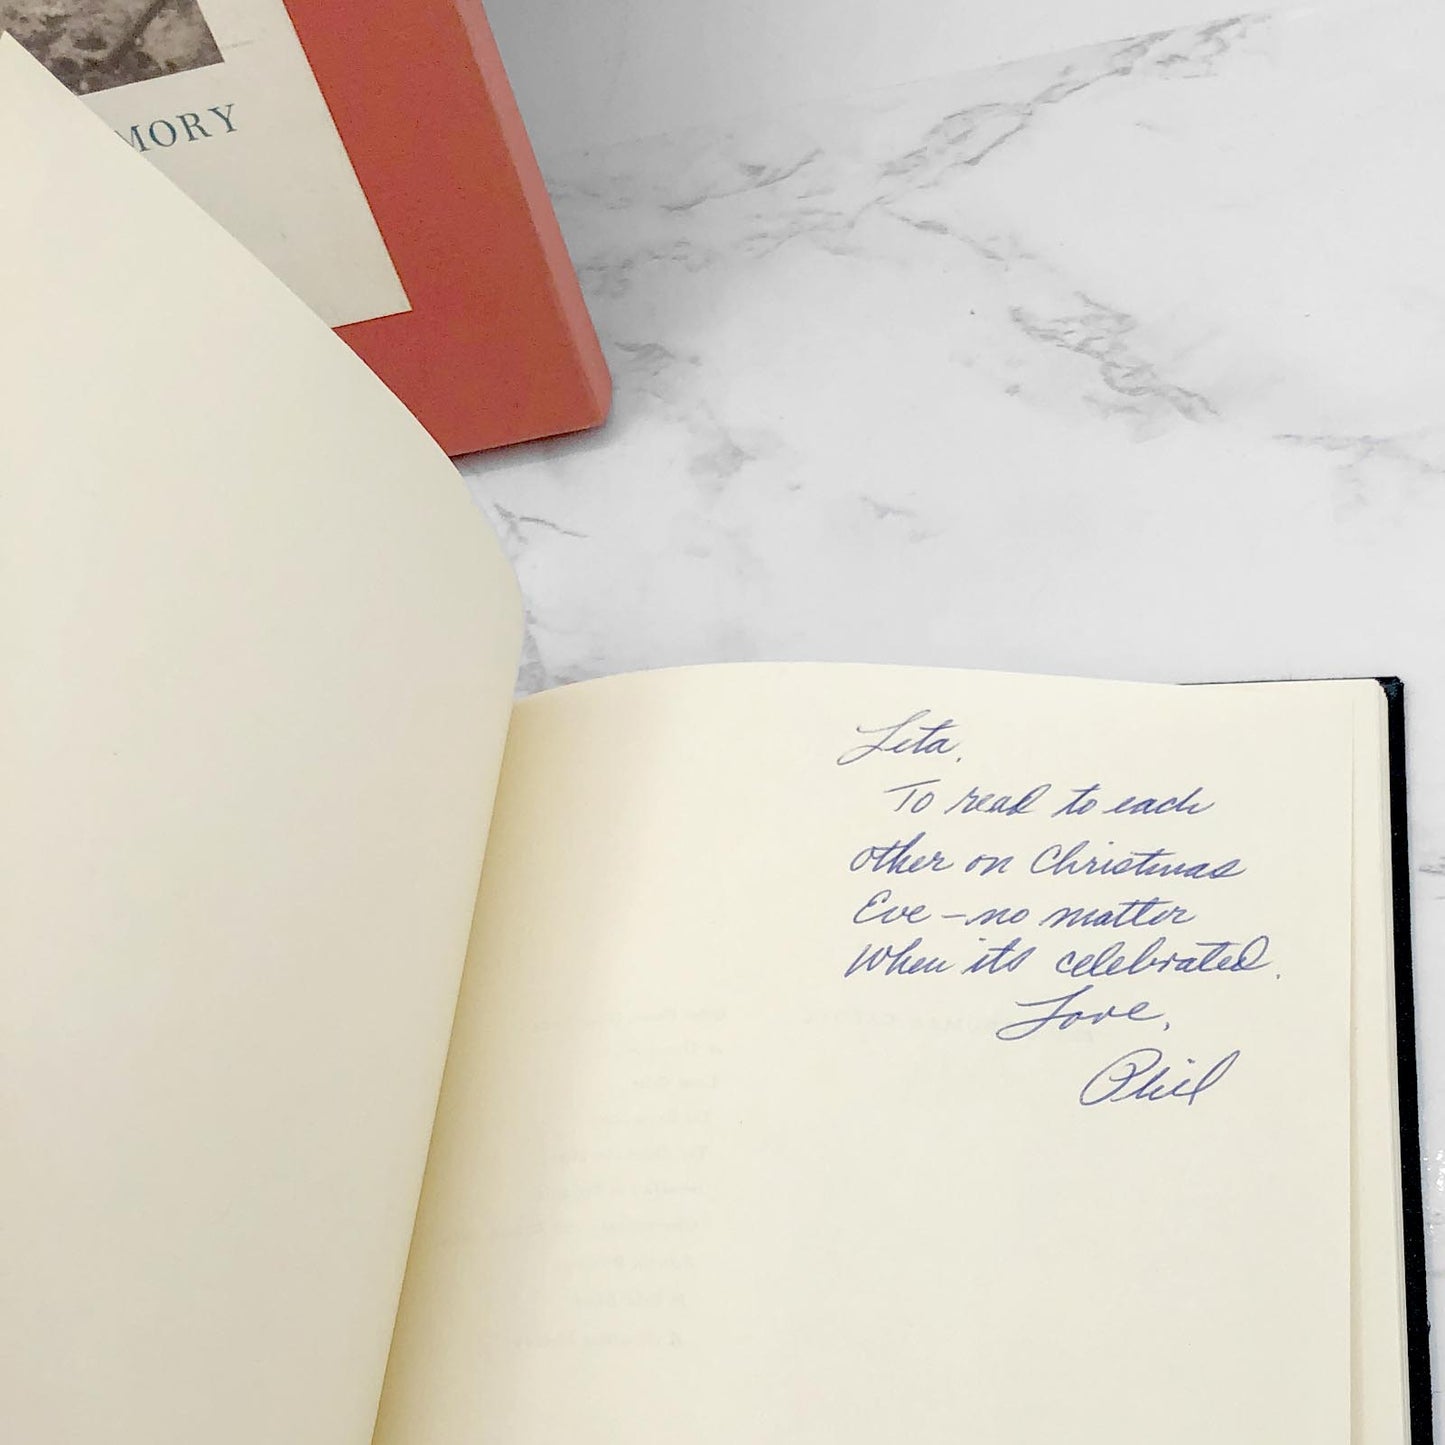 MORY
Lita,
To read to each
other on Christmas
Eve – no matter
when its celebrated.
Love,
Phil